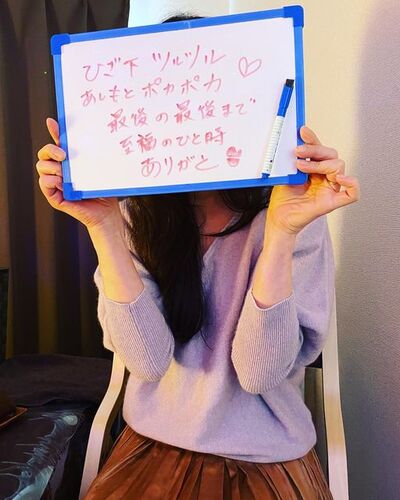 ひざ下 ツルツル
あしもと ポカポカ ♡
最後の最後まで
至福のひと時
ありがと